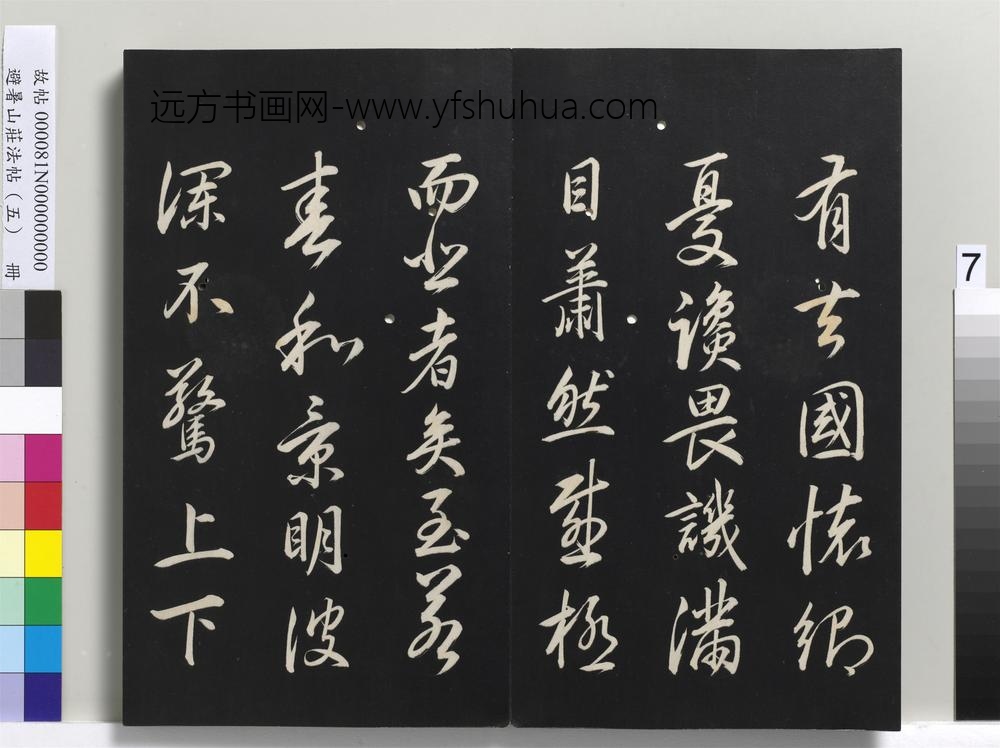 远方书画网-www.yfshuhua.com
故帖 000081N000000000
避暑山莊法帖（五） 冊
7
有去國懷鄉
憂讒畏譏滿
目蕭然感極
而悲者矣至若
春和景明波
瀾不驚上下